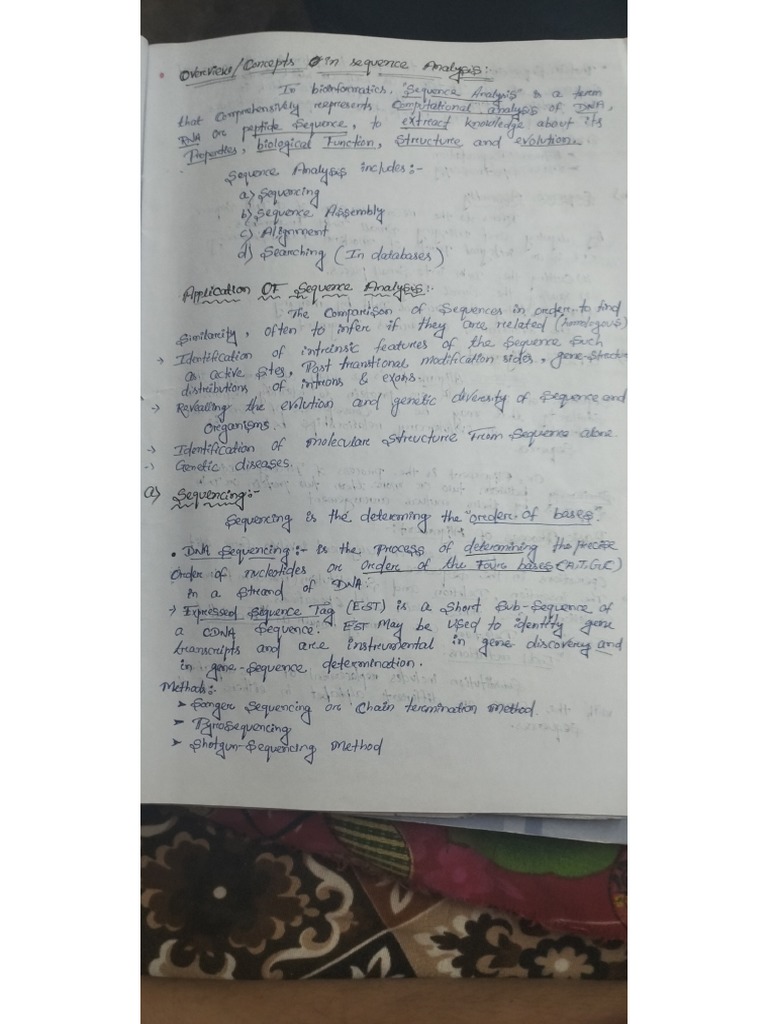 Overview/Concepts in sequence Analysis:
In bioinformatics, "Sequence Analysis" is a term
that comprehensively represents computational analysis of DNA,
RNA or peptide sequence, to extract knowledge about its
Properties, biological Function, Structure and evolution.
Sequence Analysis includes:-
a) Sequencing
b) Sequence Assembly
c) Alignment
d) Searching (In databases)
Application OF Sequence Analysis:-
The Comparison of Sequences in order to find
Similarity, often to infer if they are related (homologous)
→ Identification of intrinsic features of the Sequence Such
as active sites, Post transtional modification sides, gene-Structure
distributions of introns & exons.
→ Revealing the evolution and genetic diversity of Sequence and
Organisms
→ Identification of molecular Structure From Sequence alone.
→ Genetic diseases.
a) Sequencing:-
Sequencing is the determining the "order of bases.
• DNA Sequencing:- is the Process of determining the precise
Order of nucleotides or Order of the Four bases (A,T,G,C)
in a strand of DNA.
→ Expressed Sequence Tag (EST) is a short Sub-Sequence of
a CDNA Sequence. EST May be used to identity gene
transcripts and are instrumental in gene discovery and
in gene-Sequence determination.
Methods:-
➤ Sanger Sequencing or Chain termination Method.
➤ PyroSequencing
➤ Shotgun-Sequencing Method